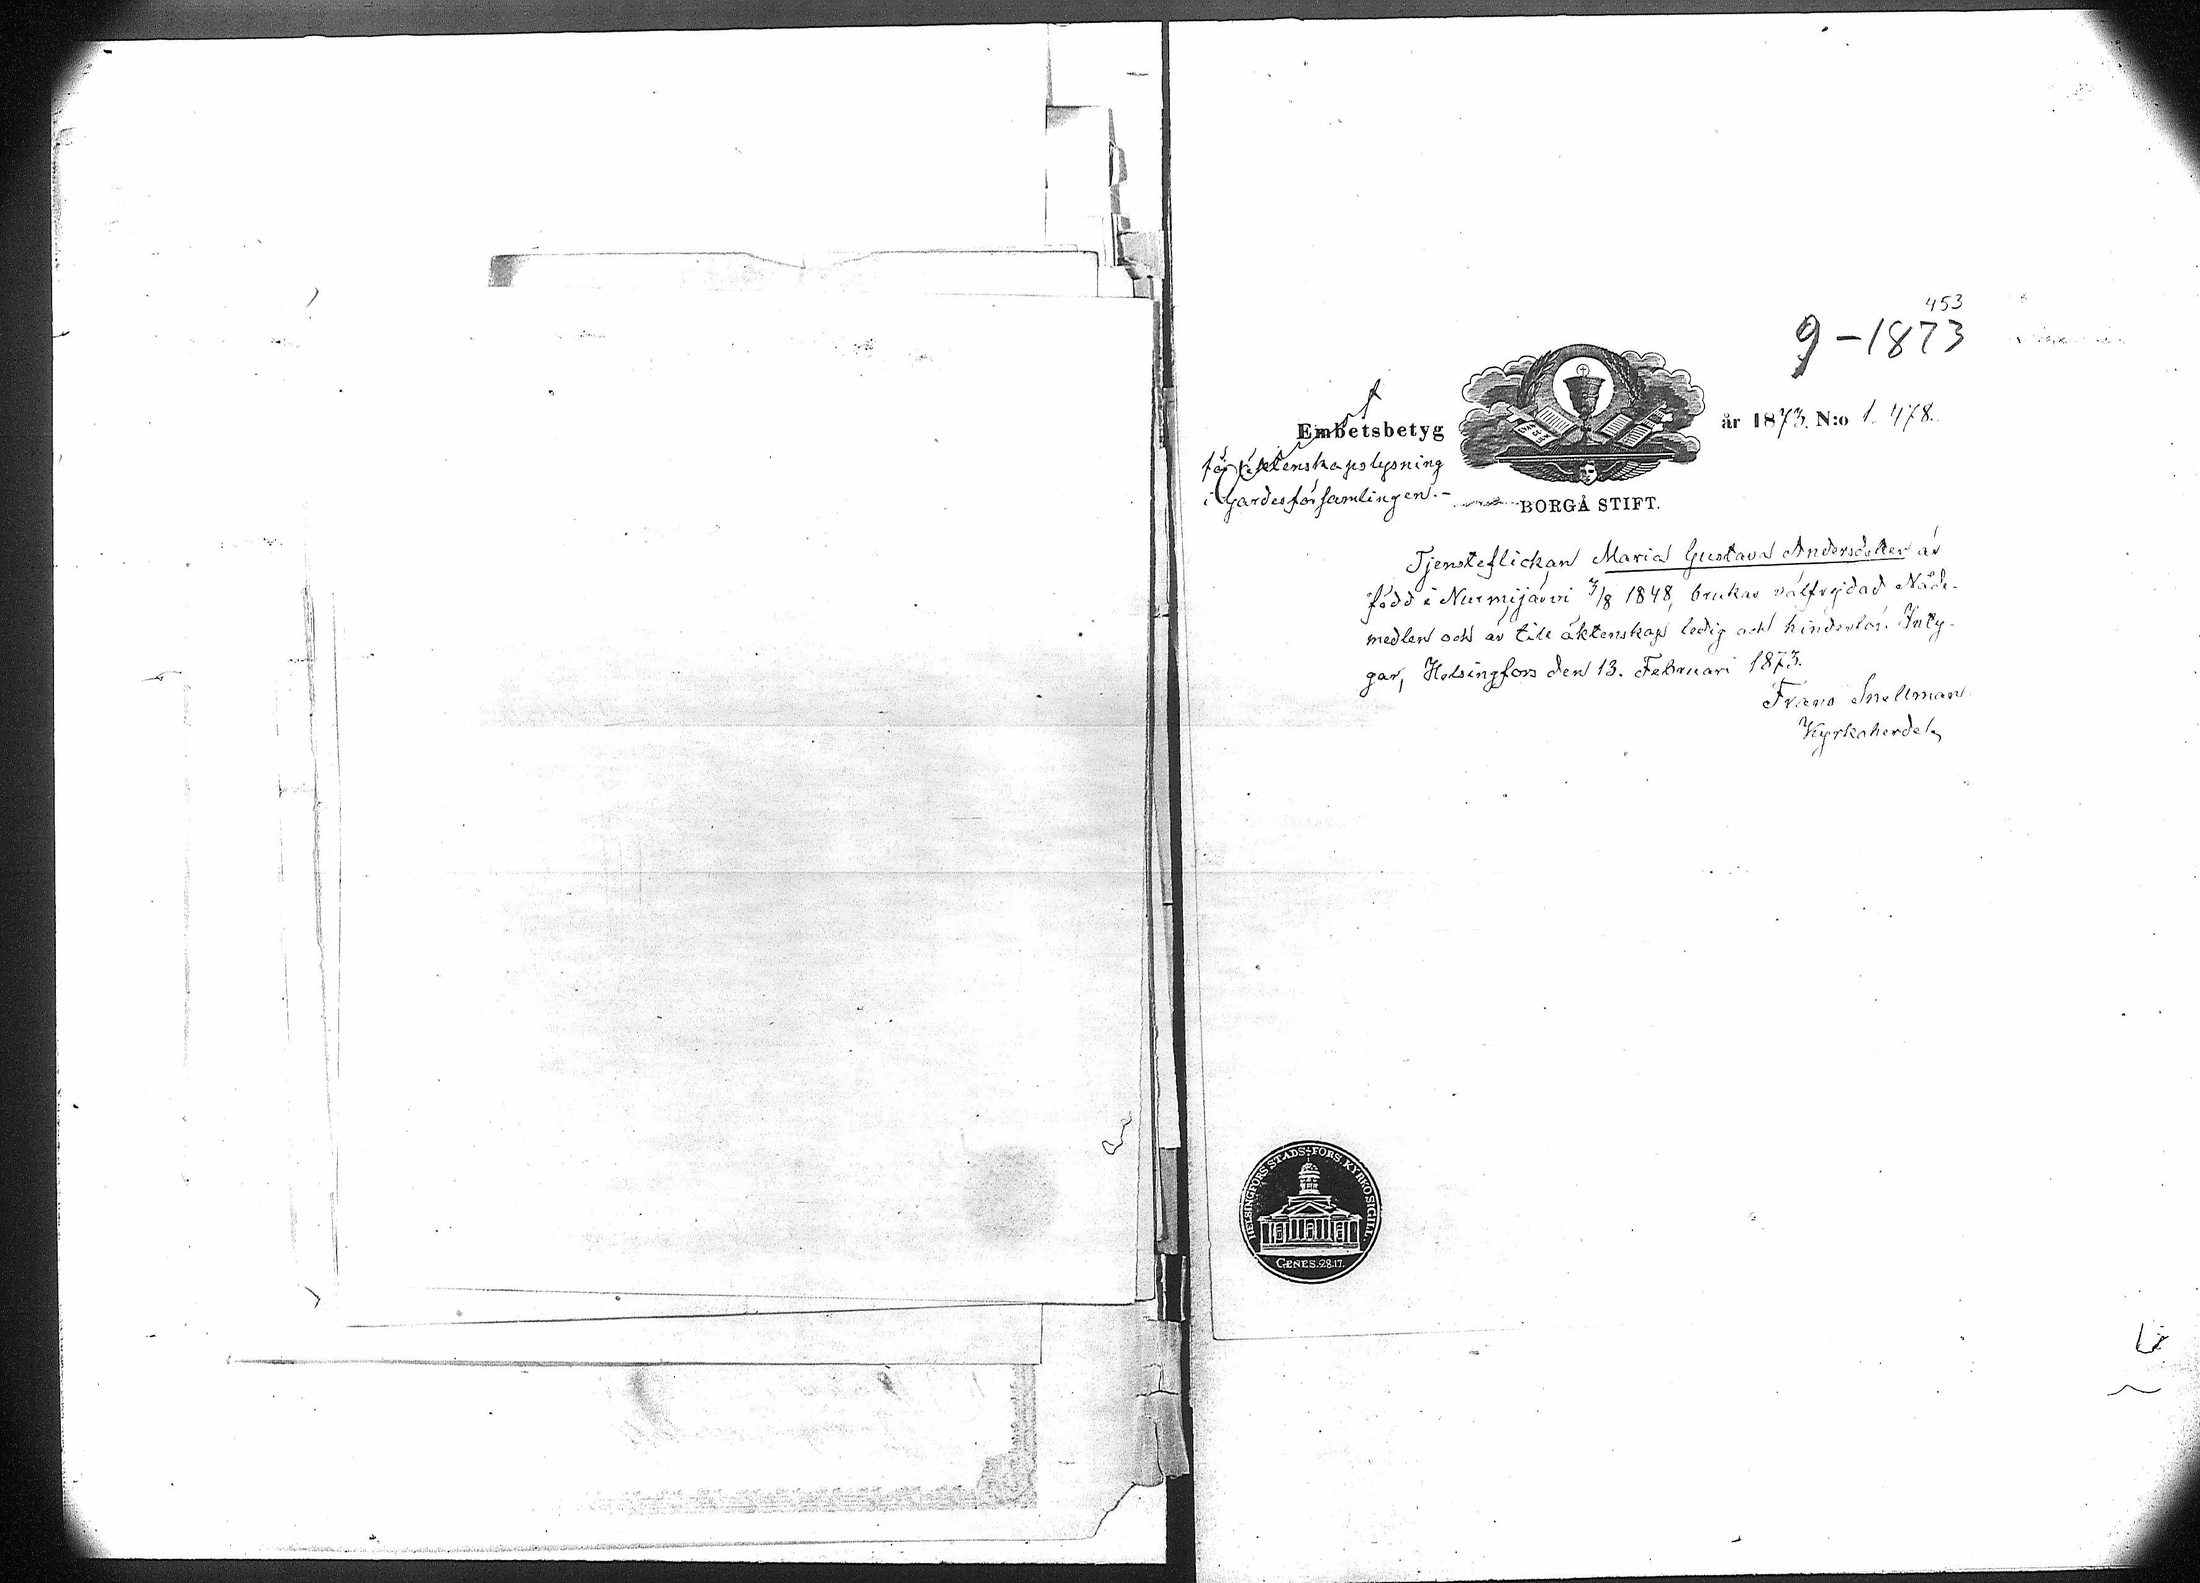 453
9-1873
Embetsbetyg
år 1873. N:o 1. 478.
för äktenskapslysning
i Gardesförsamlingen.-
BORGÅ STIFT.
Tjensteflickan Maria Gustava Andersdotter är
född i Nurmijärvi 3/8 1848, brukar välfrejdad Nåde-
medlen och är till äktenskap ledig och hinderlös. Inty-
gar, Helsingfors den 13. Februari 1873.
Frans Snellman
Kyrkoherde
HELSINGFORS STADS-FÖRS. KYRKOSIGILL.
GENES. 28.17.